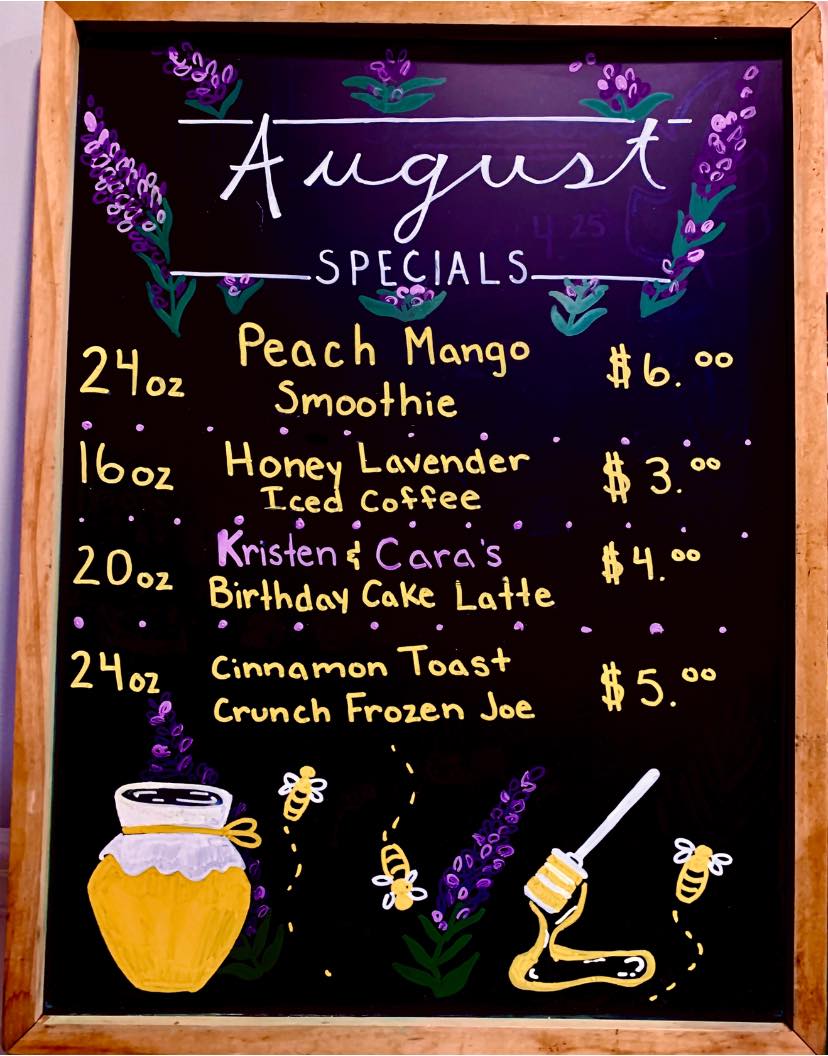 August
SPECIALS
24oz Peach Mango Smoothie $6.00
16oz Honey Lavender Iced Coffee $3.00
20oz Kristen & Cara's Birthday Cake Latte $4.00
24oz Cinnamon Toast Crunch Frozen Joe $5.00
4.25